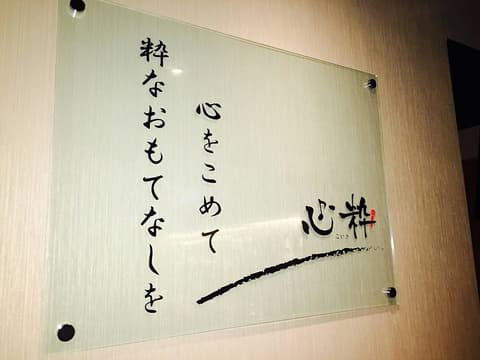 心粋
こいき
心をこめて
粋なおもてなしを